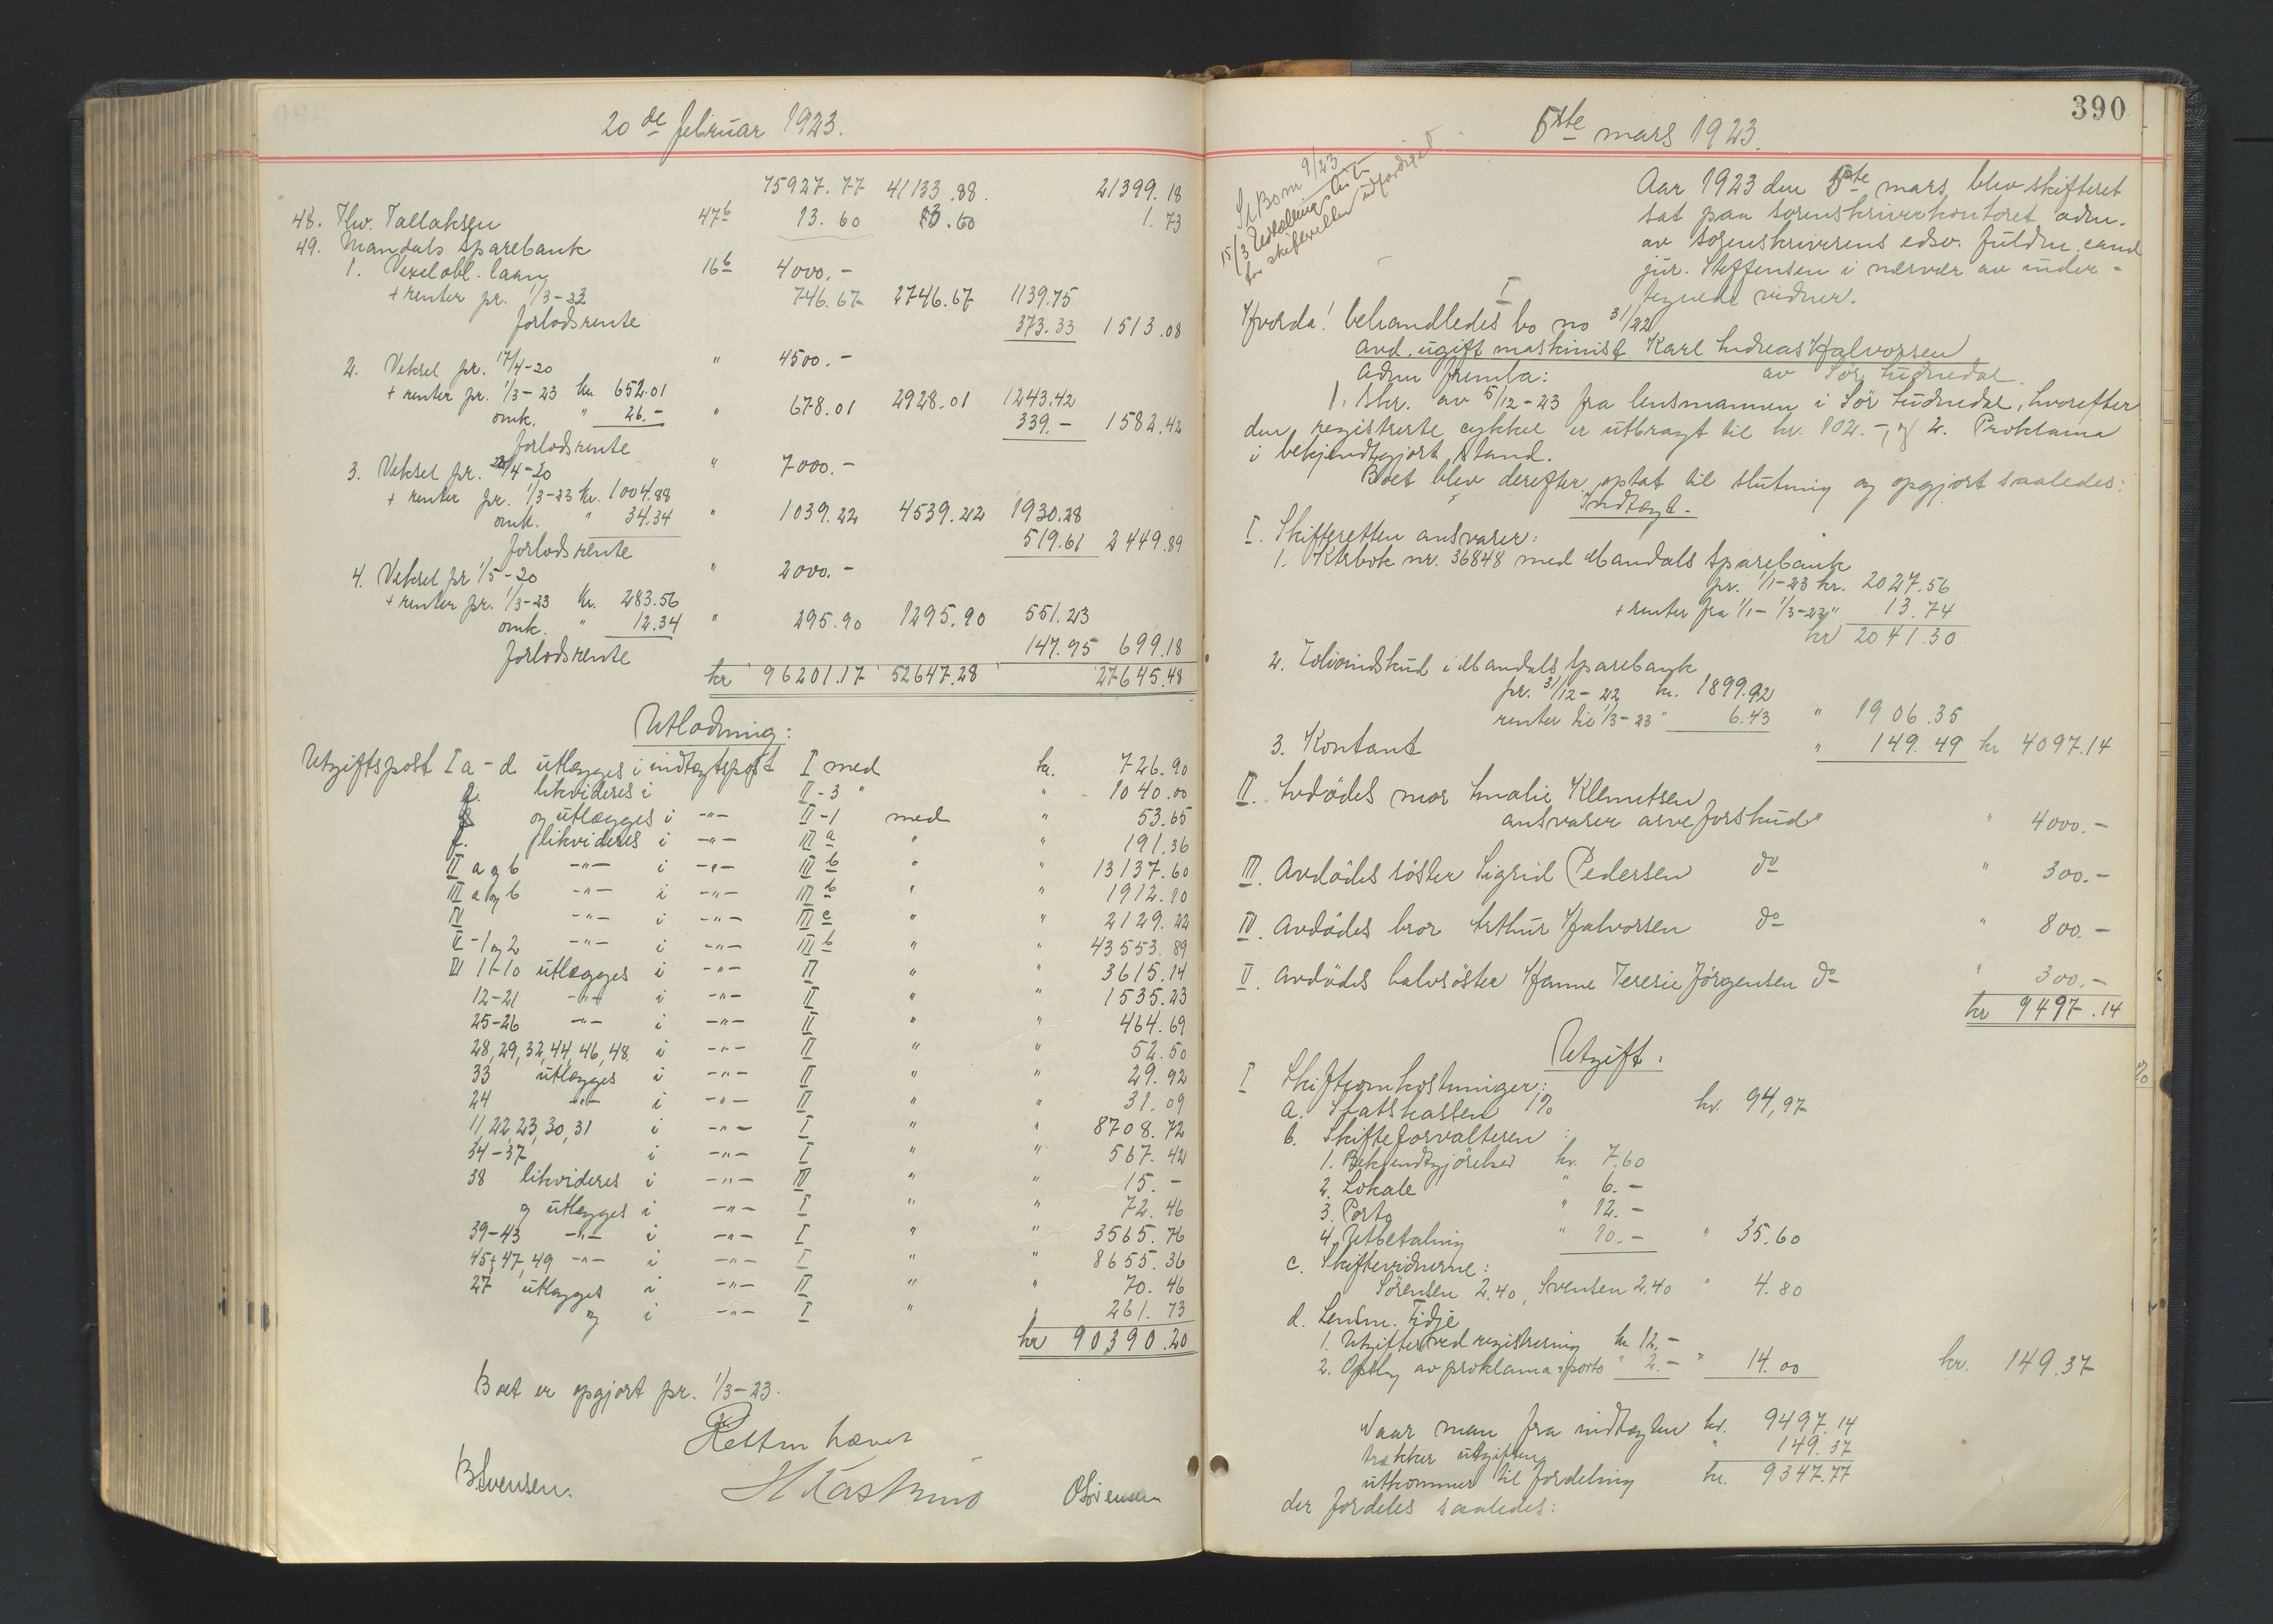 20de februar 1923.
75927.77 41133.88. 21399.18
48. Thv. Tallaksen 47b 13.60 13.60 1.73
49. Mandals Sparebank
1. Vexelobl. laan 16b 4000.-
+ renter pr. 1/3-23 746.67 2746.67 1139.75
forlodsrente 373.33 1513.08
2. Veksel pr. 17/4-20 " 4500.-
+ renter pr. 1/3-23 kr. 652.01
omk. " 26.- " 678.01 2928.01 1243.42
forlodsrente 339.- 1582.42
3. Veksel pr. 22/4-20 " 7000.-
+ renter pr. 1/3-23 kr. 1004.88
omk. " 34.34 " 1039.22 4539.22 1930.28
forlodsrente 519.61 2449.89
4. Veksel pr 1/5-20 " 2000.-
+ renter pr. 1/3-23 kr. 283.56
omk. " 12.34 " 295.90 1295.90 551.23
forlodsrente 147.95 699.18
kr 96201.17 52647.28 27645.48
Utlodning:
Utgiftspost I a-d utlægges i indtægtspost I med kr. 726.90
e. likvideres i II-3 " " 1040.00
og utlægges i -"- II-1 med " 53.65
f. likvideres i -"- III a " " 191.36
II a og b -"- i -"- III b " " 13137.60
III a og b -"- i -"- III b " " 1912.10
IV -"- i -"- III c " " 2129.22
V-1 og 2 -"- i -"- III b " " 43553.89
VI 1-10 utlægges i -"- II " " 3615.14
12-21 -"- i -"- II " " 1535.23
25-26 -"- i -"- II " " 464.69
28, 29, 32, 44, 46, 48. i -"- II " " 52.50
33 utlægges i -"- II " " 29.92
24 -"- i -"- II " " 31.09
11, 22, 23, 30, 31 i -"- I " " 8708.72
34-37 i -"- I " " 567.42
38 likvideres i -"- IV " " 15.-
og utlægges i -"- I " " 72.46
39-43 -"- i -"- I " " 3565.76
45, 47, 49 -"- i -"- I " " 8655.36
27 utlægges i -"- II " " 70.46
og i -"- I " " 261.73
kr 90390.20
Boet er opgjort pr. 1/3-23.
Retten hævet
B. Svensen. O Sørensen
390
5te mars 1923.
15/3
for skiftevillen utfærdiget
Aar 1923 den 5te mars blev skifteret
sat paa sorenskriverkontoret adm.
av sorenskriverens edsv. fuldm. cand
jur. Steffensen i nærvær av under-
tegnede vidner.
I
Hvorda! behandledes bo no 31/22
avd. ugift maskinist Karl Andreas Halvorsen
av Sør Audnedal.
Adm fremla:
1. Skr. av 5/12-23 fra lensmannen i Sør Audnedal, hvorefter
den registrerte cykkel er utbragt til kr. 102.-, og 2. Proklama
i bekjendtgjort stand.
Boet blev derefter optat til slutning og opgjort saaledes:
Indtægt.
I. Skifteretten ansvarer:
1. Ktrbok nr. 36848 med Mandals Sparebank
pr. 1/1-23 kr. 2027.56
+ renter fra 1/1- 1/3-23 " 13.74
kr 2041.30
2. Folioindskud i Mandals Sparebank
pr. 31/12-22 kr. 1899.92
renter til 1/3-23 " 6.43 " 1906.35
3. Kontant " 149.49 kr 4097.14
II. Avdødes mor Amalie Klemetsen
ansvarer arveforskud " " 4000.-
III. Avdødes søster Sigrid Pedersen do " 300.-
IV. Avdødes bror Arthur Halvorsen do " 800.-
V. Avdødes halvsøster Hanne Teresie Jørgensen do " 300.-
kr 9497.14
Utgift.
I Skifteomkostninger:
a. Statskassen 1% kr. 94,97
b. Skifteforvalteren:
1. Bekjendtgjørelser kr. 7.60
2. Lokale " 6.-
3. Porto " 12.-
4. Utbetaling " 10.- " 35.60
c. Skiftevidnerne:
Sørensen 2.40, Svensen 2.40 " 4.80
d. Lensm. Tidje
1. Utgifter ved registrering kr 12.-
2. Opsl. av proklama + porto " 2.- " 14.00 kr. 149.37
Naar man fra indtægten kr. 9497.14
trækker utgiften " 149.37
utkommer til fordeling kr. 9347.77
der fordeles saaledes: